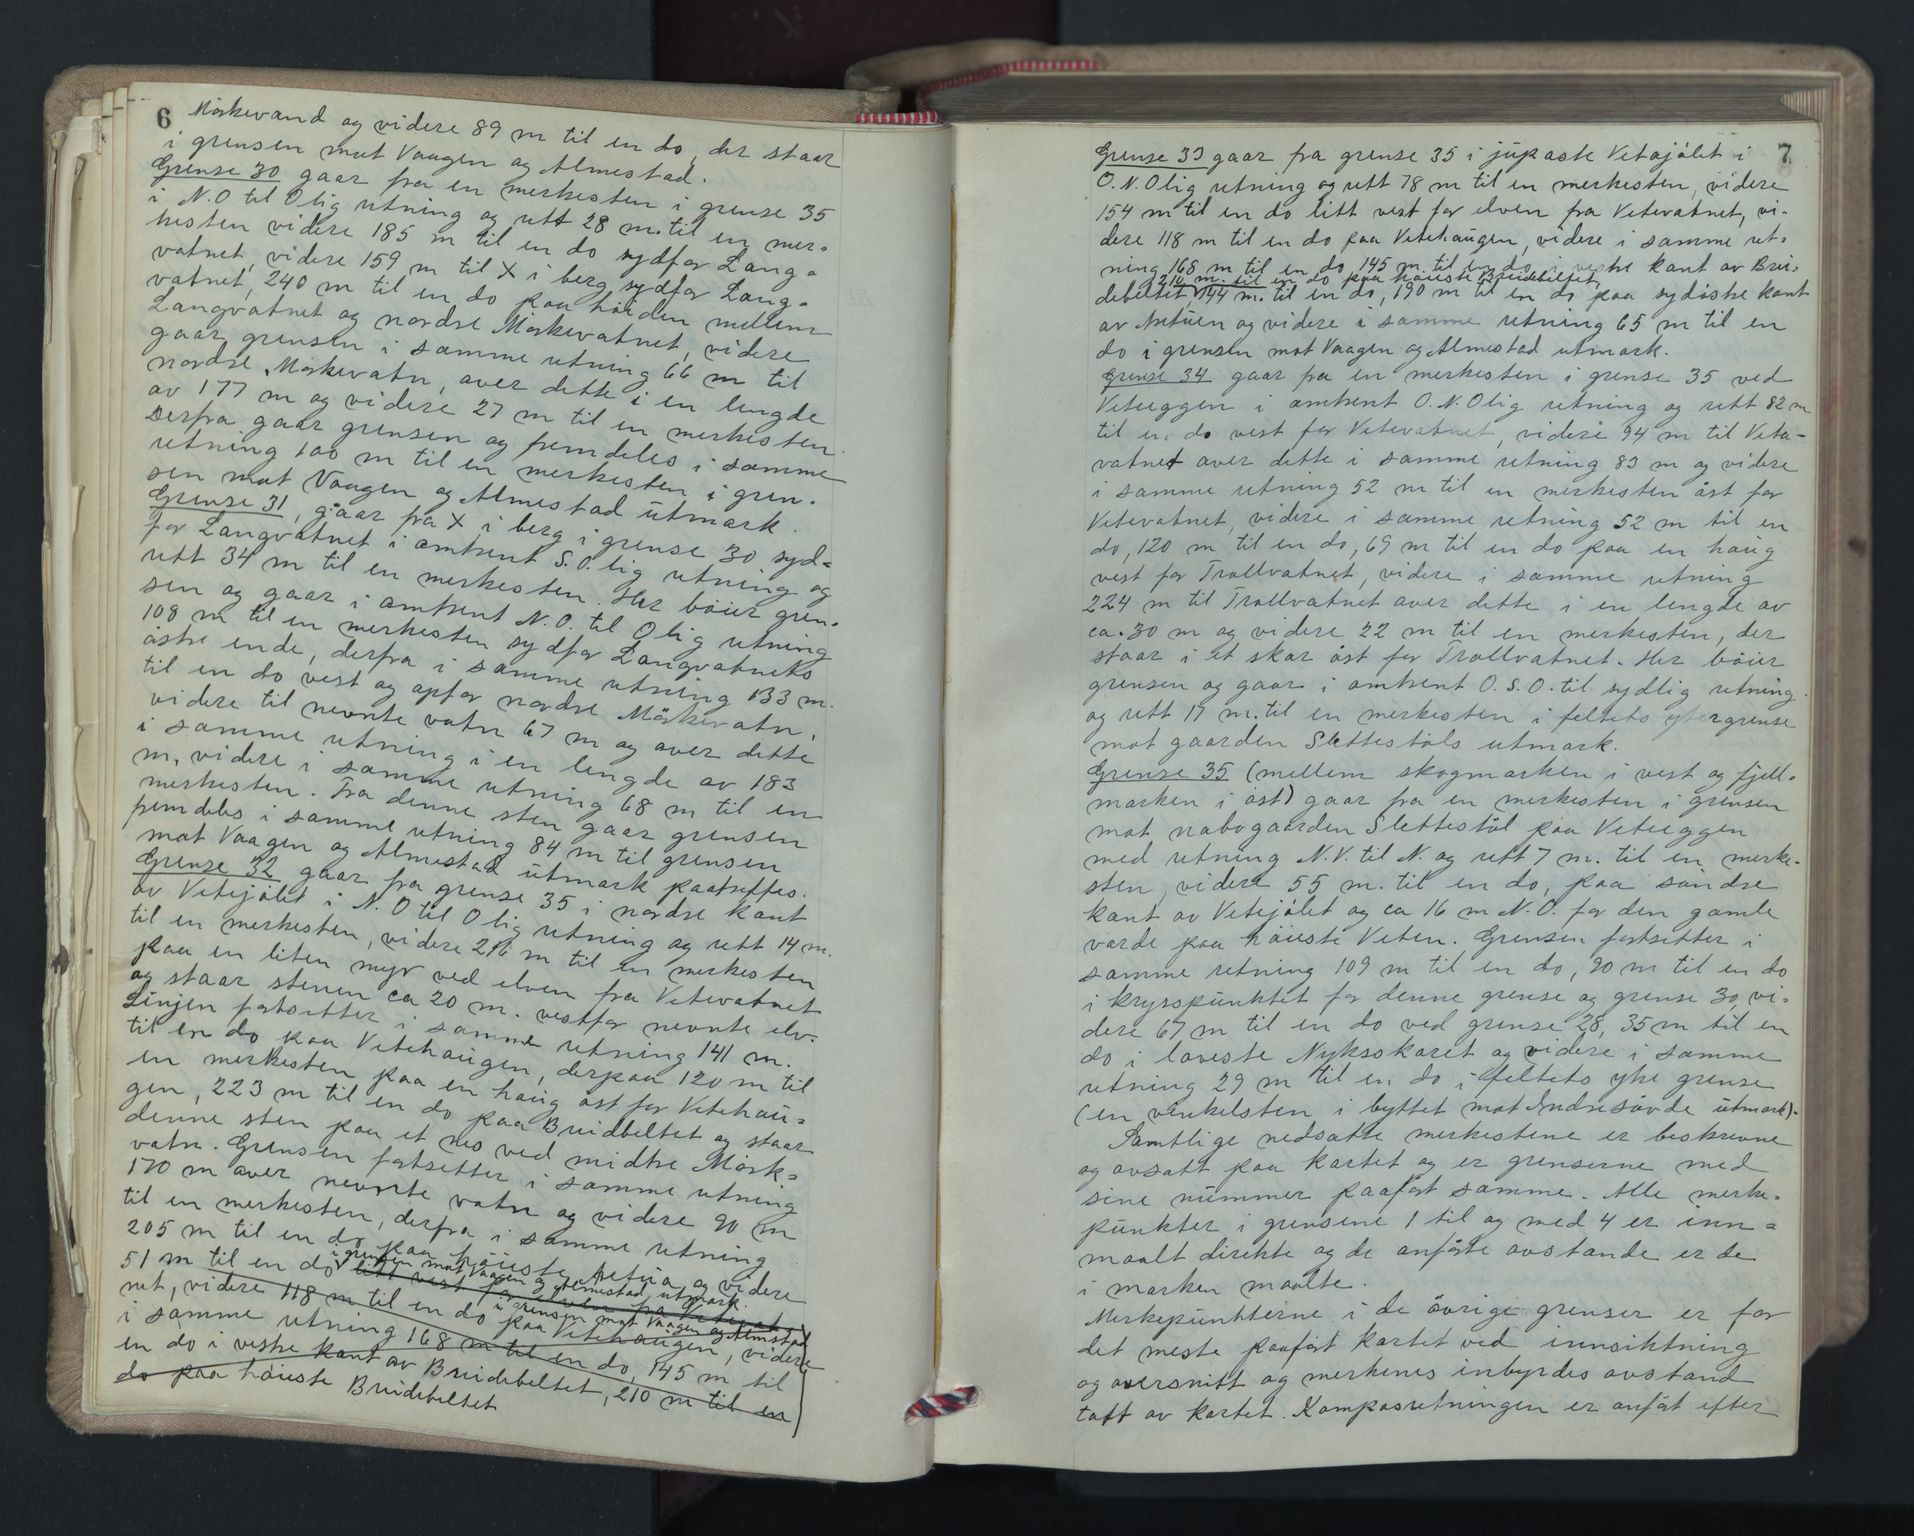 6
Mörkevand og videre 89 m til en do, der staar
i grensen mot Vaagen og Almestad.
Grense 30 gaar fra en merkesten i grense 35
i N.O til Olig retning og rett 28 m. til en mer-
kesten videre 185 m til en do sydfor Lang-
vatnet, videre 159 m til X i berg sydfor Lang-
vatnet, 240 m til en do paa höiden mellem
Langvatnet og nordre Mörkevatnet, videre
gaar grensen i samme retning 66 m til
nordre Mörkevatn, over dette i en lengde
av 177 m og videre 27 m til en merkesten.
Derfra gaar grensen og fremdeles i samme
retning 100 m til en merkesten i gren-
sen mot Vaagen og Almestad utmark.
Grense 31, gaar fra X i berg i grense 30 syd-
for Langvatnet i omtrent S.O.lig retning og
rett 34 m til en merkesten. Her böier gren-
sen og gaar i omtrent N.O. til Olig retning
108 m til en merkesten sydfor Langvatnets
östre ende, derfra i samme retning 133 m.
til en do vest og opfor nordre Mörkevatn,
videre til nevnte vatn 67 m og over dette
i samme retning i en lengde av 183
m, videre i samme retning 68 m til en
merkesten. Fra denne sten gaar grensen
fremdeles i samme retning 84 m til grensen
mot Vaagen og Almestad utmark paatreffes.
Grense 32 gaar fra grense 35 i nordre kant
av Vetejölet i N.O til Olig retning og rett 14 m.
til en merkesten, videre 216 m til en merkesten
paa en liten myr ved elven fra Vetevatnet
og staar stenen ca 20 m. vestfor nevnte elv.
Linjen fortsetter i samme retning 141 m.
til en do paa Vetehaugen, derpaa 120 m til
en merkesten paa en haug öst for Vetehau-
gen, 223 m til en do paa Breidbeltet og staar
denne sten paa et nes ved midtre Mörk-
vatn. Grensen fortsetter i samme retning
170 m over nevnte vatn og videre 90 m
til en merkesten, derfra i samme retning
205 m til en do paa höieste Netua og videre
i grensen mot Vaagen og Almestad utmark.
51 m til en do litt vest for elven fra Vetevat-
i grensen mot Vaagen og Almstad
net, videre 118 m til en do paa Vetehaugen, videre
i samme retning 168 m til en do, 145 m til
en do i vestre kant av Breidebeltet, 210 m til en
do paa höieste Breidebeltet
7
Grense 33 gaar fra grense 35 i jupaste Vetajölet i
O.N.Olig retning og rett 78 m til en merkesten, videre
154 m til en do litt vest for elven fra Vetevatnet, vi-
dere 118 m til en do paa Vetehaugen, videre i samme ret-
ning 168 m til en do 145 m til en do i vestre kant av Brei-
210 m til en do paa höieste Breidebeltet,
debeltet, 144 m. til en do, 190 m til en do paa sydöstre kant
av Netuen og videre i samme retning 65 m til en
do i grensen mot Vaagen og Almestad utmark.
Grense 34 gaar fra en merkesten i grense 35 ved
Veteeggen i omtrent O.N.Olig retning og rett 82 m
til en do vest for Vetevatnet, videre 94 m til Vete-
vatnet over dette i samme retning 83 m og videre
i samme retning 52 m til en merkesten öst for
Vetevatnet, videre i samme retning 52 m til en
do, 120 m til en do, 69 m til en do paa en haug
vest for Trollvatnet, videre i samme retning
224 m til Trollvatnet over dette i en lengde av
ca. 30 m og videre 22 m til en merkesten, der
staar i et skar öst for Trollvatnet. Her böier
grensen og gaar i omtrent O.S.O. til sydlig retning
og rett 17 m. til en merkesten i feltets ytergrense
mot gaarden Slettestöls utmark.
Grense 35 (mellem skogmarken i vest og fjell-
marken i öst) gaar fra en merkesten i grensen
mot nabogaarden Slettestöl paa Veteeggen
med retning N.V. til N. og rett 7 m. til en merke-
sten, videre 55 m. til en do, paa söndre
kant av Vetejölet og ca 16 m N.O. for den gamle
varde paa höieste Veten. Grensen fortsetter i
samme retning 109 m til en do, 90 m til en do
i kryspunktet for denne grense og grense 30, vi-
dere 67 m til en do ved grense 28, 35 m til en
do i laveste Nyksskaret og videre i samme
retning 29 m til en do i feltets ytre grense
(en vinkelsten i byttet mot Indresövde utmark).
Samtlige nedsatte merkestene er beskrevne
og avsatt paa kartet og er grenserne med
sine nummer paafört samme. Alle merke-
punkter i grensene 1 til og med 4 er inn-
maalt direkte og de anförte avstande er de
i marken maalte.
Merkepunkterne i de övrige grenser er for
det meste paafört kartet ved innsiktning
og oversnitt og merkenes inbyrdes avstand
tatt av kartet. Kompasretningen er anfört efter